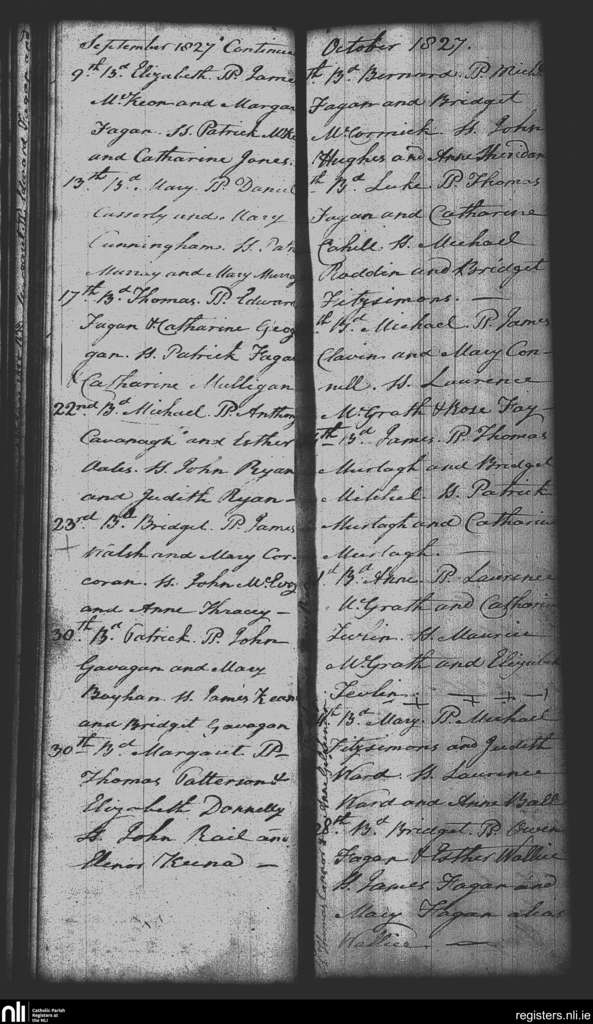 September 1827 Continue
9th Bd. Elizabeth. PP. Jame
McKeon and Margar
Fagan. SS. Patrick McKe
and Catharine Jones.
13th Bd. Mary. PP. Daniel
Casserly and Mary
Cunningham. SS. Pat
Murray and Mary Murray
17th Bd. Thomas. PP. Edward
Fagan & Catharine Geog
gan. SS. Patrick Fagan
Catharine Mulligan
22nd Bd. Michael PP. Anthony
Cavanagh and Esther
Oates. SS. John Ryan
and Judith Ryan –
23rd Bd. Bridget. PP. James
Walsh and Mary Cor-
coran. SS. John McEvoy
and Anne Thracey –
30th. Bd. Patrick. PP. John
Gavagan and Mary
Boyhan. SS. James Kean
and Bridget Gavagan
30th Bd. Margaret PP–
Thomas Patterson &
Elizabeth Donnelly
SS. John Rail and
Elenor Keena –
October 1827.
th Bd. Bernard. PP. Mich
Fagan and Bridget
McCormick. SS. John
Hughes and Anne Sheridan
th Bd. Luke. PP. Thomas
Fagan and Catharine
Cahill. SS. Michael
Roddin and Bridget
Fitzsimons. –
th Bd. Michael. PP. James
Clavin and Mary Con-
nell. SS. Laurence
McGrath & Rose Fay –
th Bd. James. PP. Thomas
Murtagh and Bridget
Mitchel. SS. Patrick
Murtagh and Catharine
Murtagh. –
1st Bd. Anne. PP. Laurence
McGrath and Catharin
Tevlin. SS. Maurice
McGrath and Elizabeth
Tevlin.
th Bd. Mary. PP. Michael
Fitzsimons and Judith
Ward. SS. Laurence
Ward and Anne Ball
th Bd. Bridget. PP. Owen
Fagan & Esther Wallice
SS. James Fagan and
Mary Fagan alias
Wallice. –
SS. Thomas Connor & Anne
nli
Catholic Parish
Registers at
the NLI
registers.nli.ie